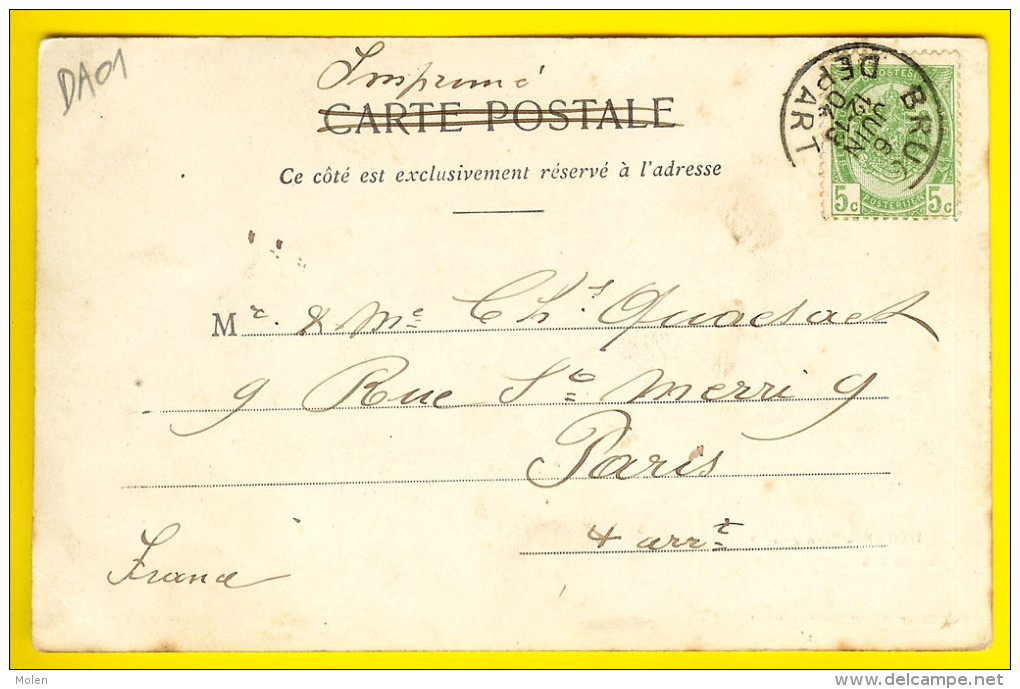 DA01
Imprimé
CARTE POSTALE
Ce côté est exclusivement réservé à l'adresse
BRUG
DEPART
6
JUIN
POSTES
5c POSTERIJEN 5c
Mr. & Me Chs.
9 Rue St Merri 9
Paris
4 arrt
France
Molen
delcampe.net